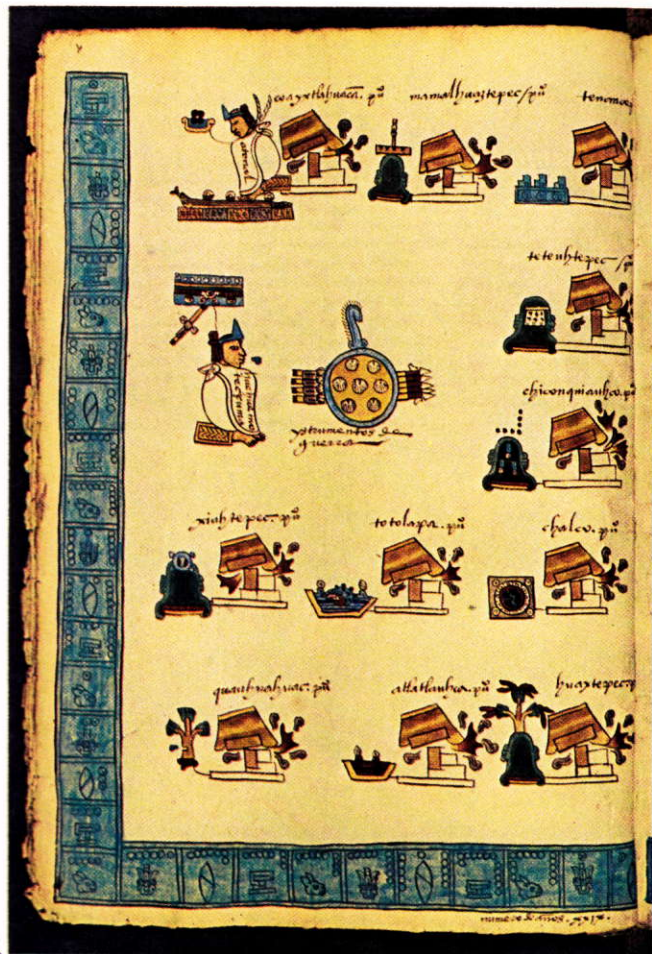 coayxtlahuacā. puº
mamalhuaztepec / puº
tenanco
atonal
tetenhtepec / pu
huehue mo
teccuma
ystrumentos de
guerra
chiconquiauhco. pu
xiuhtepec. puº
totolapa. puº
chalco. puº
quauhnahuac. puº
atlatlauhca. puº
huaxtepec. p
numero de años. xxix.